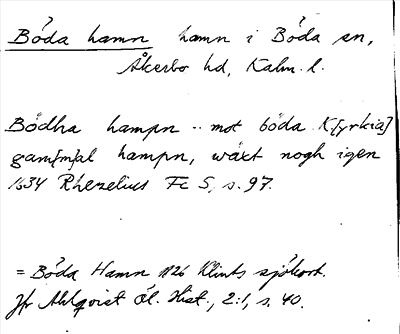 Böda hamn hamn i Böda sn,
Åkerbo hd, Kalm. l.
Bödha hampn .. mot böda K[yrkia]
gam[m]al hampn, wäxt nogh igen
1634 Rhezelius Fc 5, s. 97.
= Böda Hamn 1126 Klints sjökort.
Jfr Ahlqvist Öl. Hist., 2:1, s. 40.